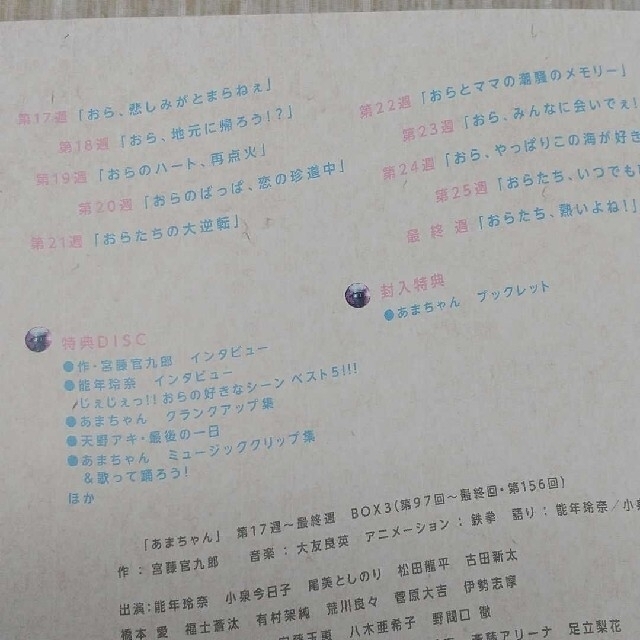 第17週「おら、悲しみがとまらねぇ」
第18週「おら、地元に帰ろう!?」
第19週「おらのハート、再点火」
第20週「おらのばっぱ、恋の珍道中」
第21週「おらたちの大逆転」
第22週「おらとママの潮騒のメモリー」
第23週「おら、みんなに会いでぇ!
第24週「おら、やっぱりこの海が好き
第25週「おらたち、いつでも
最終週「おらたち、熱いよね!」
特典DISC
●作・宮藤官九郎 インタビュー
●能年玲奈 インタビュー
じぇじぇっ!! おらの好きなシーン ベスト5!!!
●あまちゃん クランクアップ集
●天野アキ・最後の一日
●あまちゃん ミュージッククリップ集
&歌って踊ろう!
ほか
封入特典
●あまちゃん ブックレット
「あまちゃん」 第17週～最終週 BOX3(第97回～最終回・第156回)
作:宮藤官九郎 音楽:大友良英 アニメーション:鉄拳 語り:能年玲奈/小泉
出演:能年玲奈 小泉今日子 尾美としのり 松田龍平 古田新太
橋本 愛 福士蒼汰 有村架純 荒川良々 菅原大吉 伊勢志摩
八木亜希子 野間口 徹
斉藤アリーナ 足立梨花